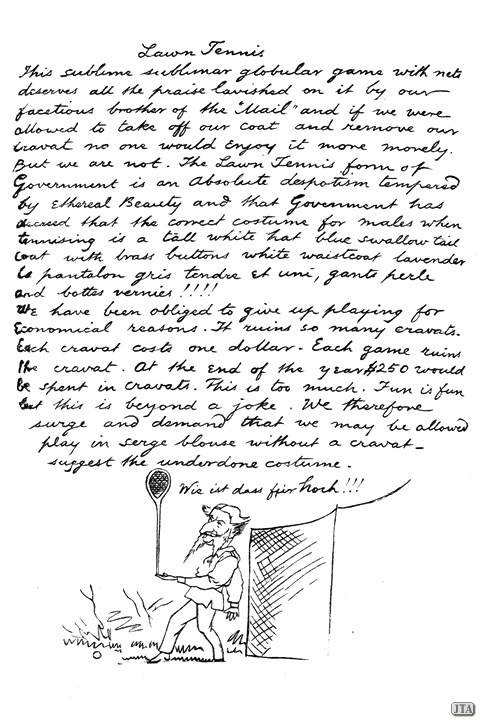 Lawn Tennis
This sublime sublunar globular game with nets
deserves all the praise lavished on it by our
facetious brother of the "Mail" and if we were
allowed to take off our coat and remove our
cravat no one would enjoy it more morely.
But we are not. The Lawn Tennis form of
Government is an Absolute despotism tempered
by Ethereal Beauty and that Government has
decreed that the correct costume for males when
tennising is a tall white hat blue swallow tail
coat with brass buttons white waistcoat lavender
pantalon gris tendre et uni, gants perle
and bottes vernies !!!!
We have been obliged to give up playing for
Economical reasons. It ruins so many cravats.
Each cravat costs one dollar. Each game ruins
the cravat. At the end of the year $250 would
be spent in cravats. This is too much. Fun is fun
but this is beyond a joke. We therefore
surge and demand that we may be allowed
play in serge blouse without a cravat—
suggest the underdone costume.
Wie ist dass für hoch!!!
JTA